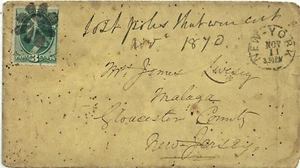 lost poles that were cut
Nov. 1870
NEW YORK
NOV
11
3
Mrs James
Malaga
Gloucester County
New Jersey